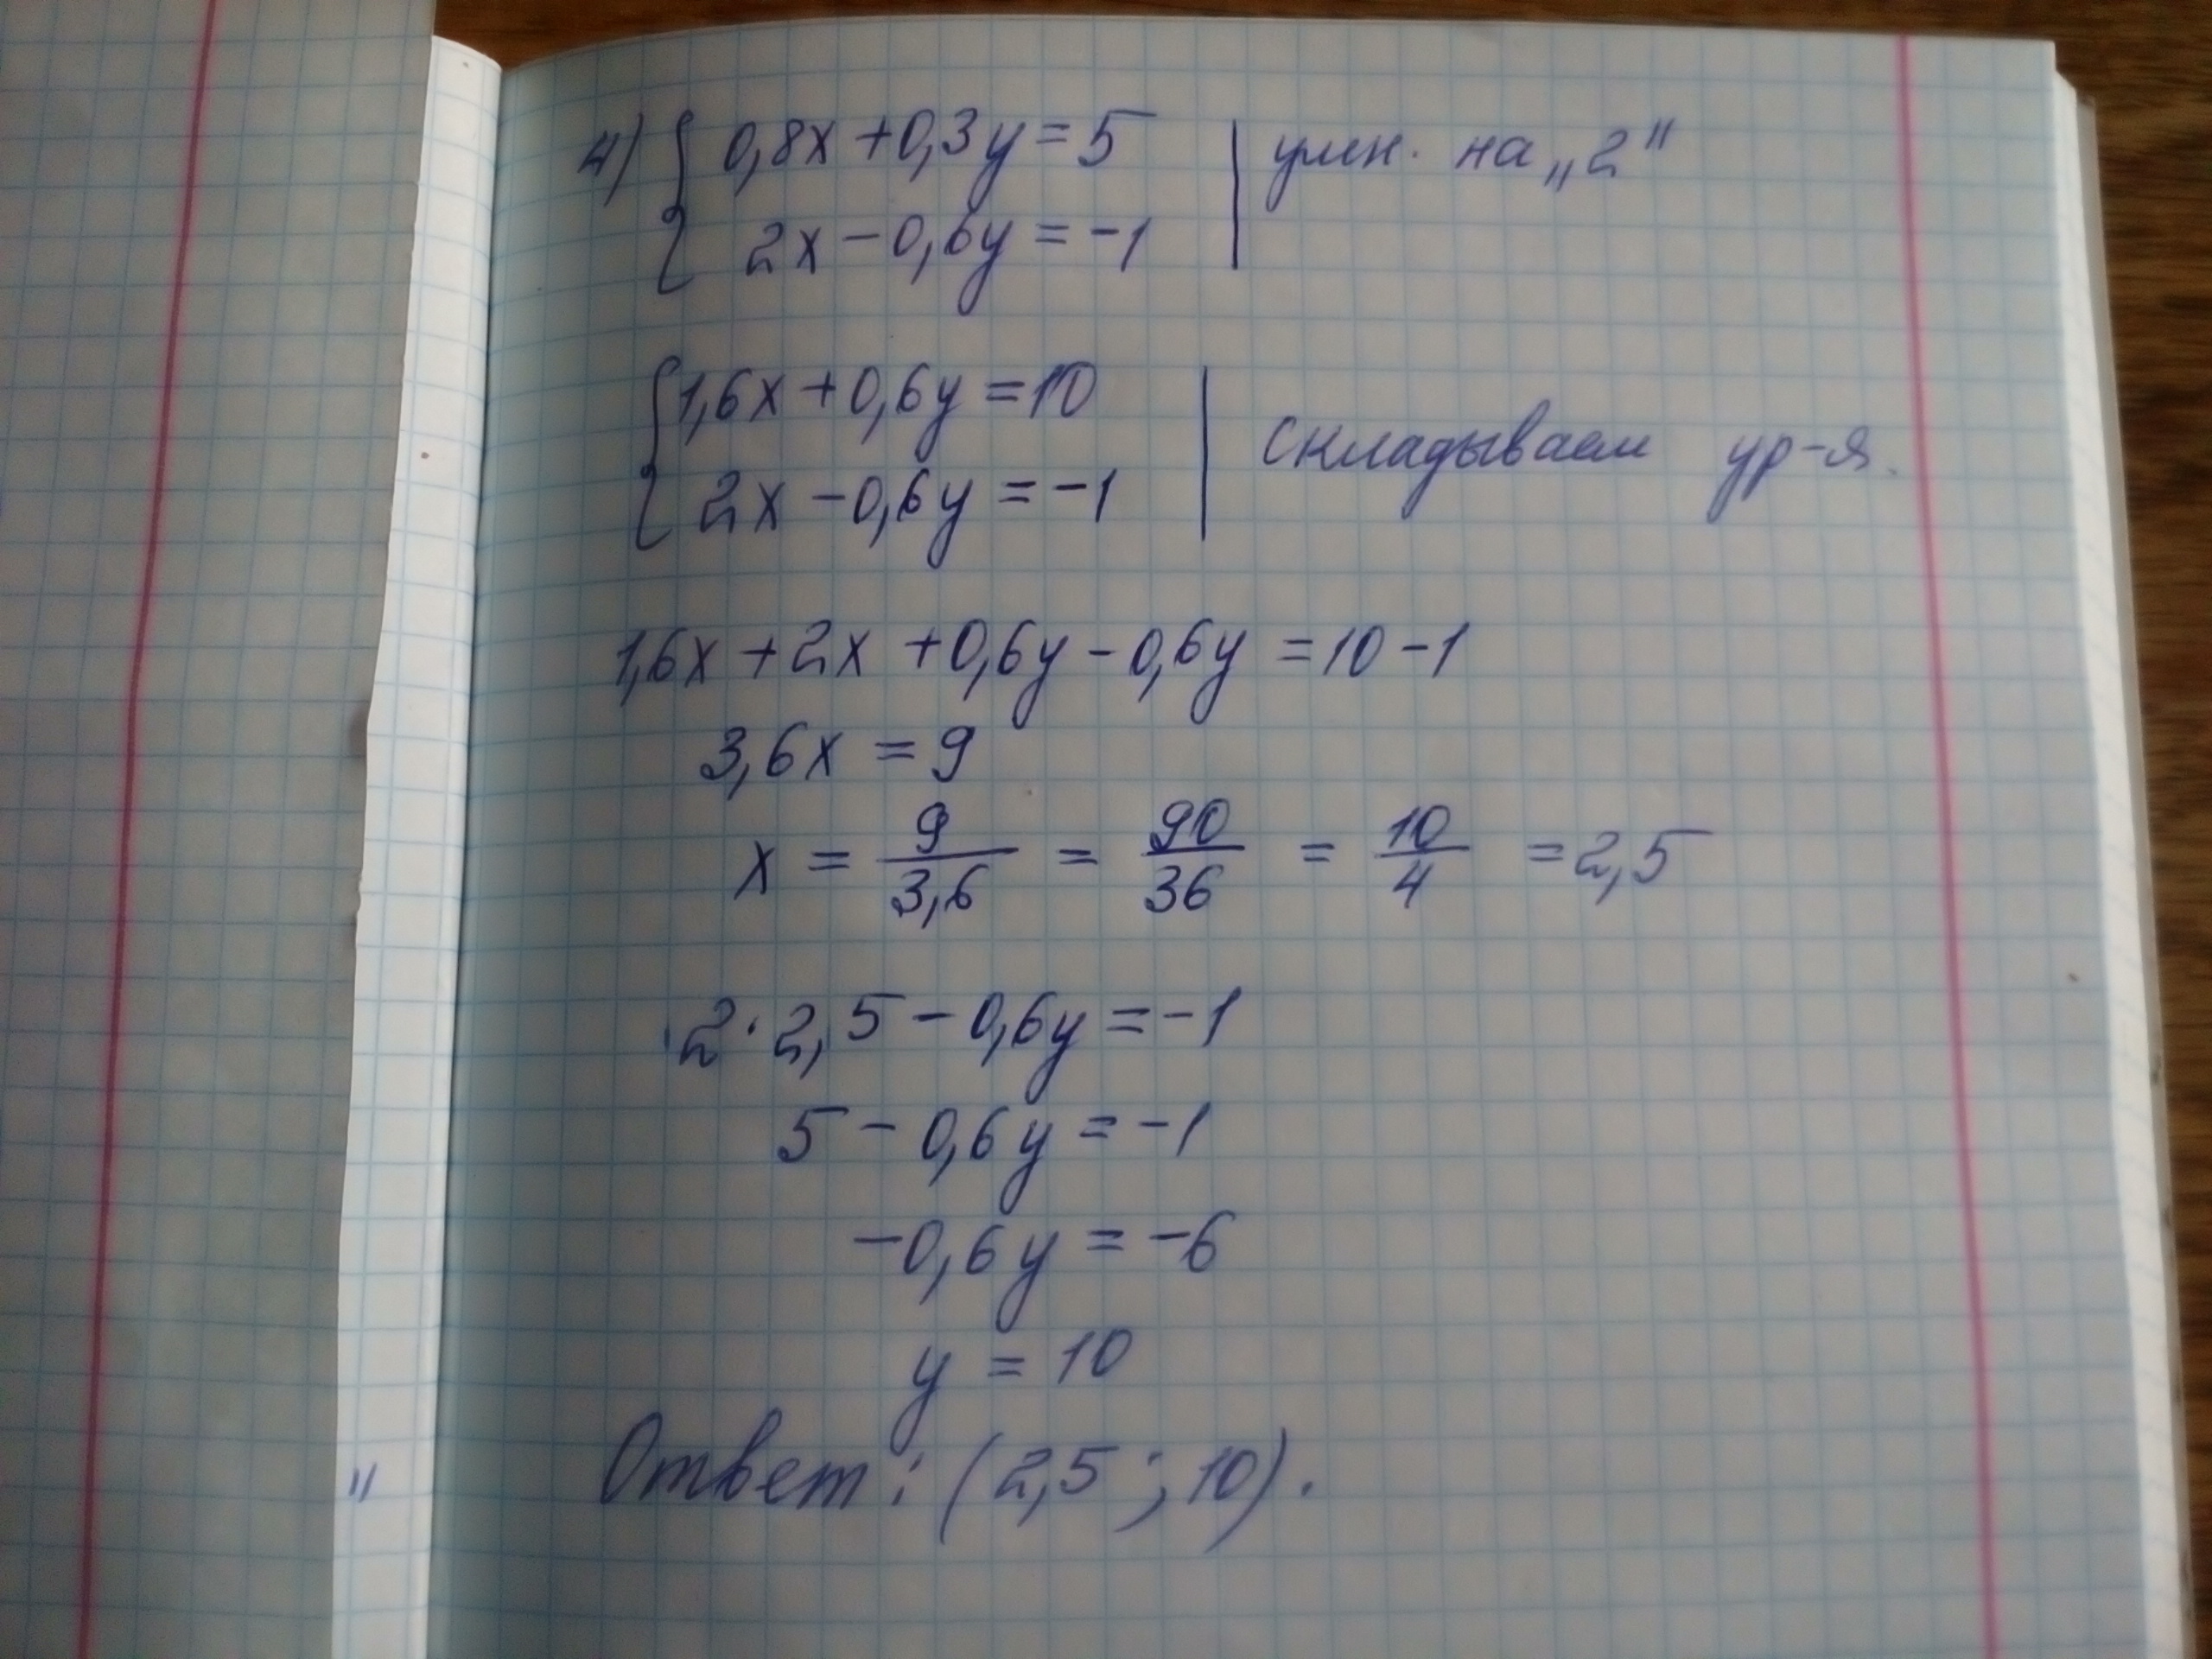 4) { 0,8x + 0,3y = 5 | умн. на „2"
2x - 0,6y = -1
{ 1,6x + 0,6y = 10 | складываем ур-я.
2x - 0,6y = -1
1,6x + 2x + 0,6y - 0,6y = 10 - 1
3,6x = 9
x = 9/3,6 = 90/36 = 10/4 = 2,5
2 · 2,5 - 0,6y = -1
5 - 0,6y = -1
-0,6y = -6
y = 10
Ответ: (2,5; 10).
"